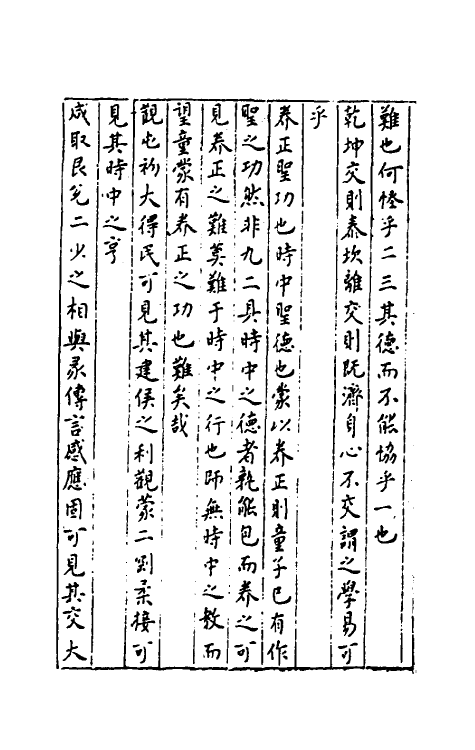 難也何恠乎二三其德而不能協乎一也
乾坤交則泰坎離交則既濟身心不交謂之學易可
乎
养正聖功也時中聖德也蒙以养正則童子已有作
聖之功然非九二具時中之德者孰能包而养之可
見养正之難莫難于時中之行也師無時中之教而
望童蒙有养正之功也難矣哉
觀屯初大得民可見其建侯之利觀蒙二剛柔接可
見其時中之亨
咸取艮兌二少之相與彖傳言感應固可見其交大